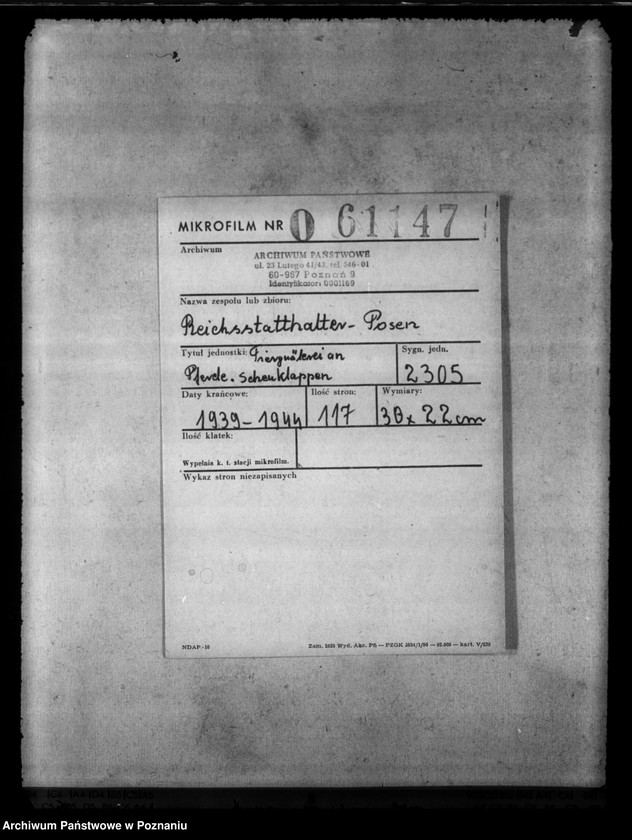 MIKROFILM NR 0 61147
Archiwum
ARCHIWUM PAŃSTWOWE
ul. 23 Lutego 41/43, tel. 546-01
60-967 Poznań 9
Identyfikator: 0001169
Nazwa zespołu lub zbioru:
Reichsstatthalter - Posen
Tytuł jednostki: an
Pferde. Scheuklappen
Sygn. jedn.
2305
Daty krańcowe:
1939-1944
Ilość stron:
117
Wymiary:
30x22cm
Ilość klatek:
Wypełnia k. t. stacji mikrofilm.
Wykaz stron niezapisanych
NDAP-16
Archiwum Państwowe w Poznaniu